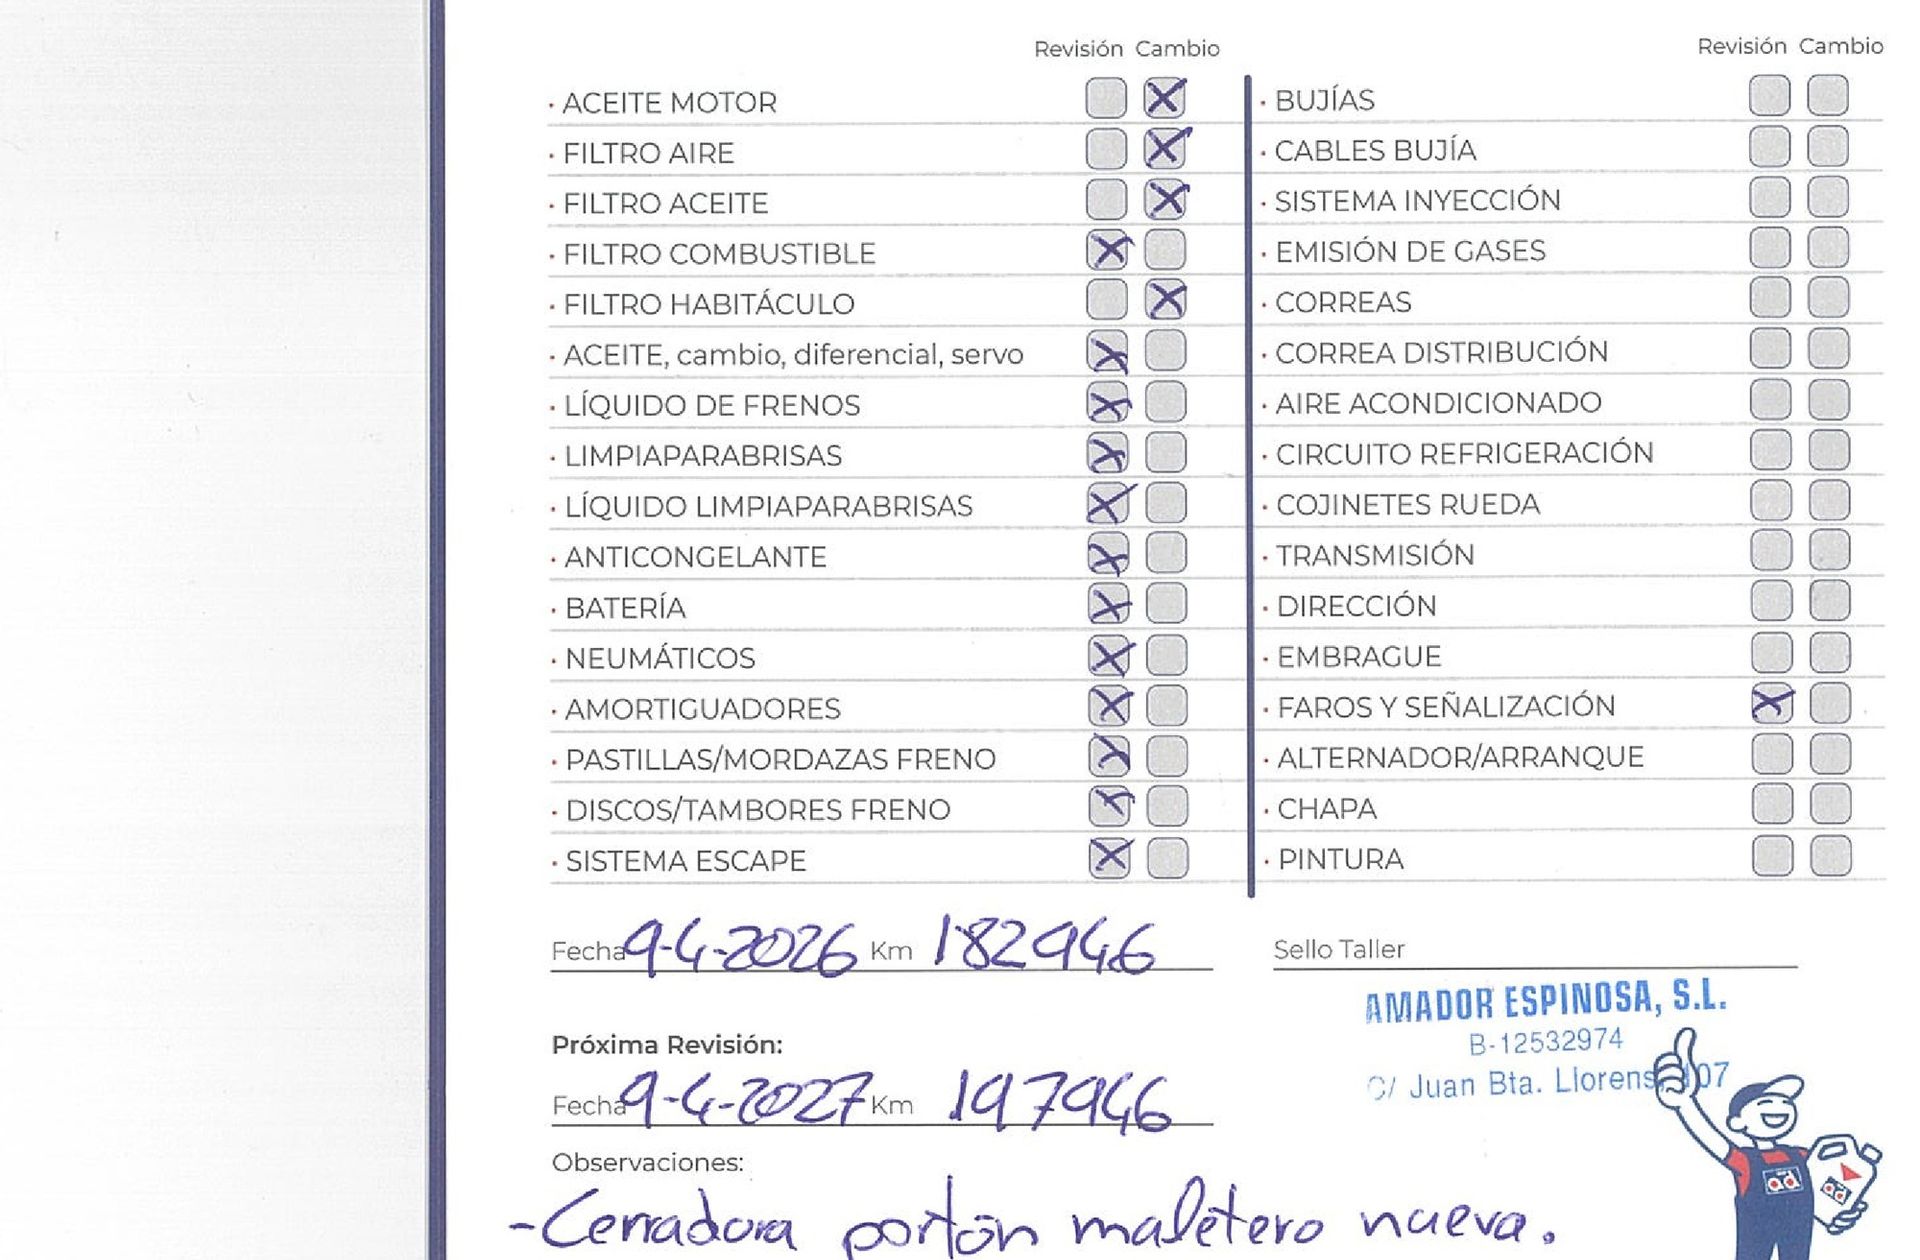 Revisión Cambio
· ACEITE MOTOR
· FILTRO AIRE
· FILTRO ACEITE
· FILTRO COMBUSTIBLE
· FILTRO HABITÁCULO
· ACEITE, cambio, diferencial, servo
· LÍQUIDO DE FRENOS
· LIMPIAPARABRISAS
· LÍQUIDO LIMPIAPARABRISAS
· ANTICONGELANTE
· BATERÍA
· NEUMÁTICOS
· AMORTIGUADORES
· PASTILLAS/MORDAZAS FRENO
· DISCOS/TAMBORES FRENO
· SISTEMA ESCAPE
Revisión Cambio
· BUJÍAS
· CABLES BUJÍA
· SISTEMA INYECCIÓN
· EMISIÓN DE GASES
· CORREAS
· CORREA DISTRIBUCIÓN
· AIRE ACONDICIONADO
· CIRCUITO REFRIGERACIÓN
· COJINETES RUEDA
· TRANSMISIÓN
· DIRECCIÓN
· EMBRAGUE
· FAROS Y SEÑALIZACIÓN
· ALTERNADOR/ARRANQUE
· CHAPA
· PINTURA
Fecha 9-4-2026 Km 182946
Próxima Revisión:
Fecha 9-4-2027 Km 197946
Observaciones:
- Cerradora portón maletero nueva.
Sello Taller
AMADOR ESPINOSA, S.L.
B-12532974
C/ Juan Bta. Llorens, 107
ad ad